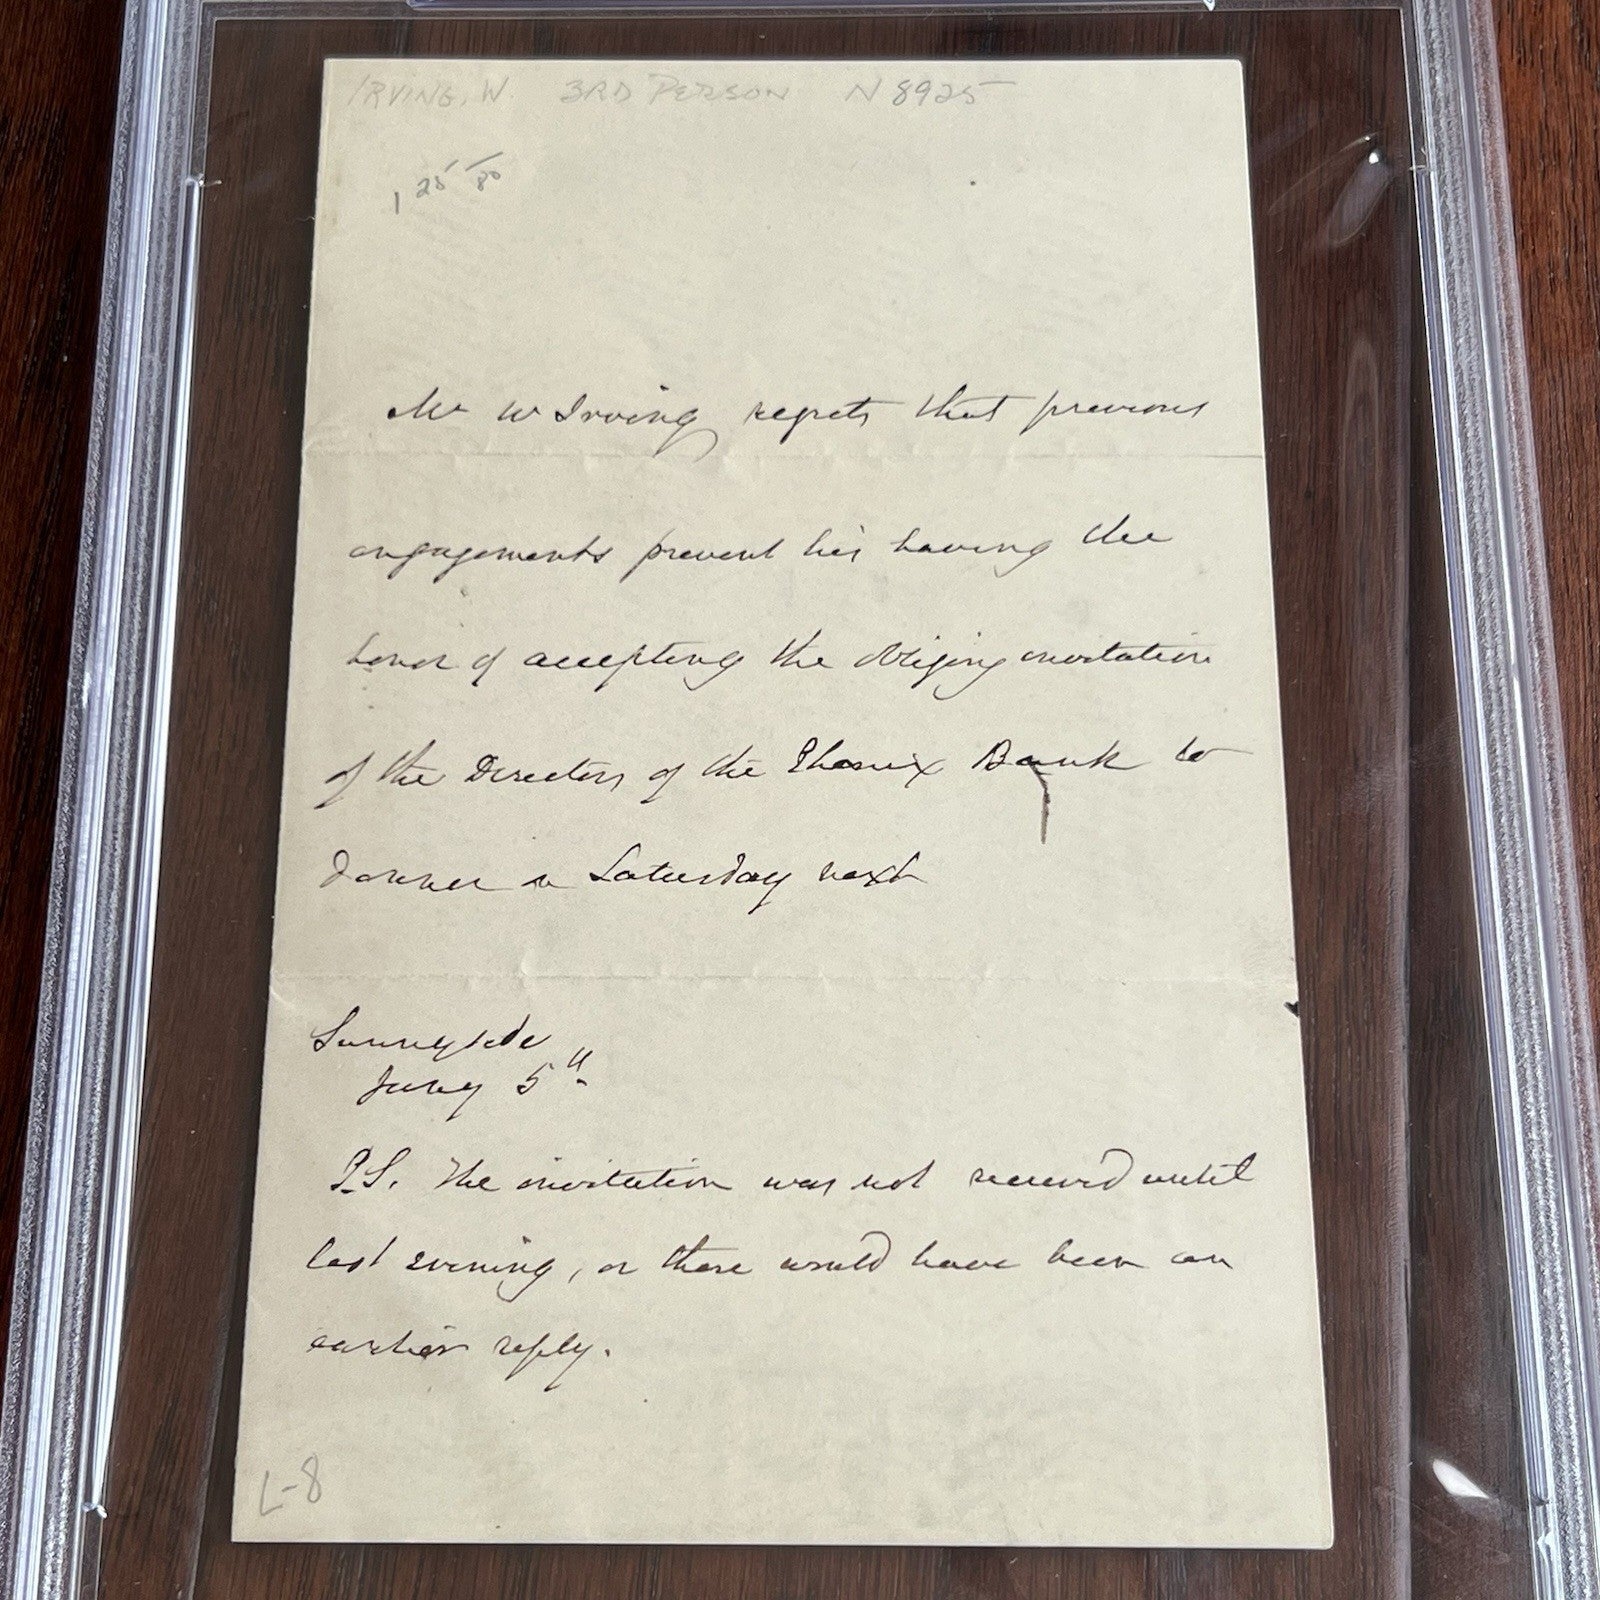 IRVING, W. 3RD PERSON N 8925
1 25 80
Mr W Irving regrets that previous
engagements prevent his having the
honor of accepting the obliging invitation
of the Directors of the Phenix Bank to
dinner on Saturday next
Sunnyside
Jany 5th
P.S. The invitation was not received until
last evening, or there would have been an
earlier reply.
L-8